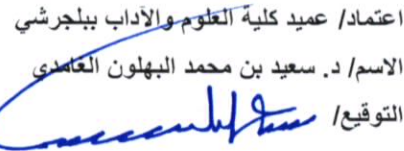 اعتماد/ عميد كلية العلوم والآداب ببلجرشي
الاسم/ د. سعيد بن محمد البهلون الغامدي
التوقيع/